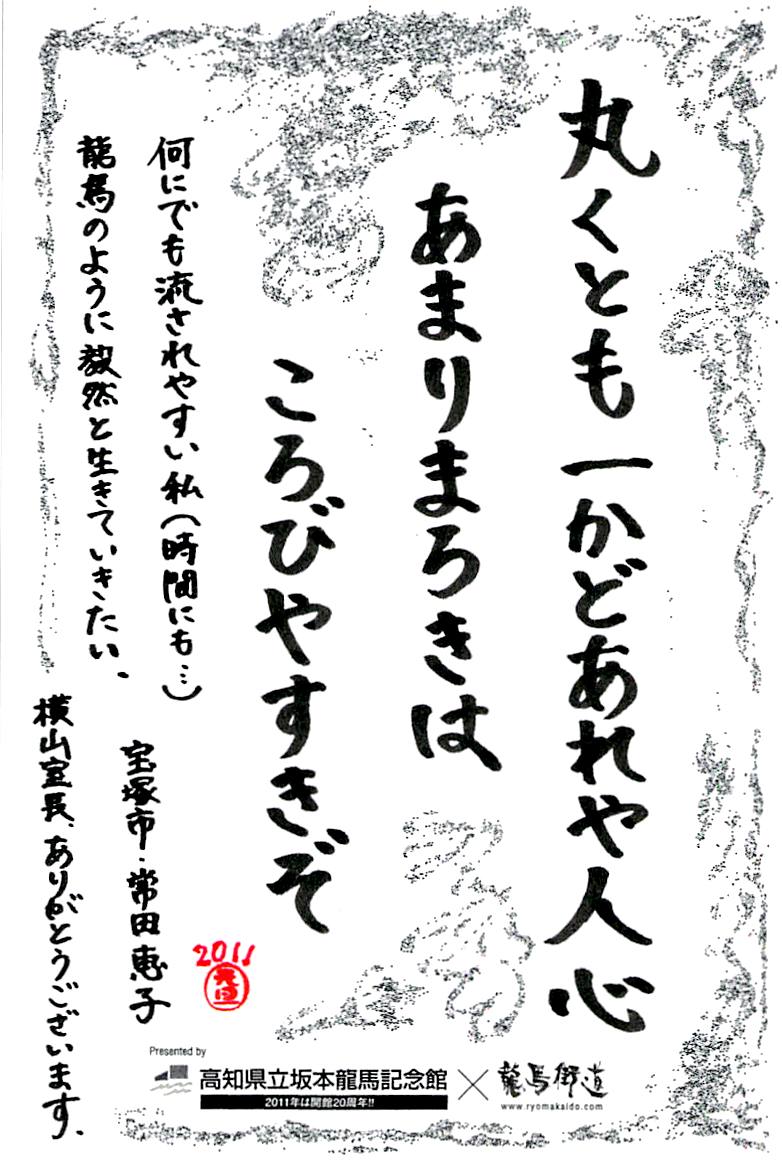 丸くとも一かどあれや人心
あまりまろきは
ころびやすきぞ
何にでも流されやすい私(時間にも…)
龍馬のように毅然と生きていきたい、
宝塚市・常田恵子
横山室長、ありがとうございます、
2011
元旦
Presented by
高知県立坂本龍馬記念館
2011年は開館20周年!!
×
龍馬街道
www.ryomakaido.com